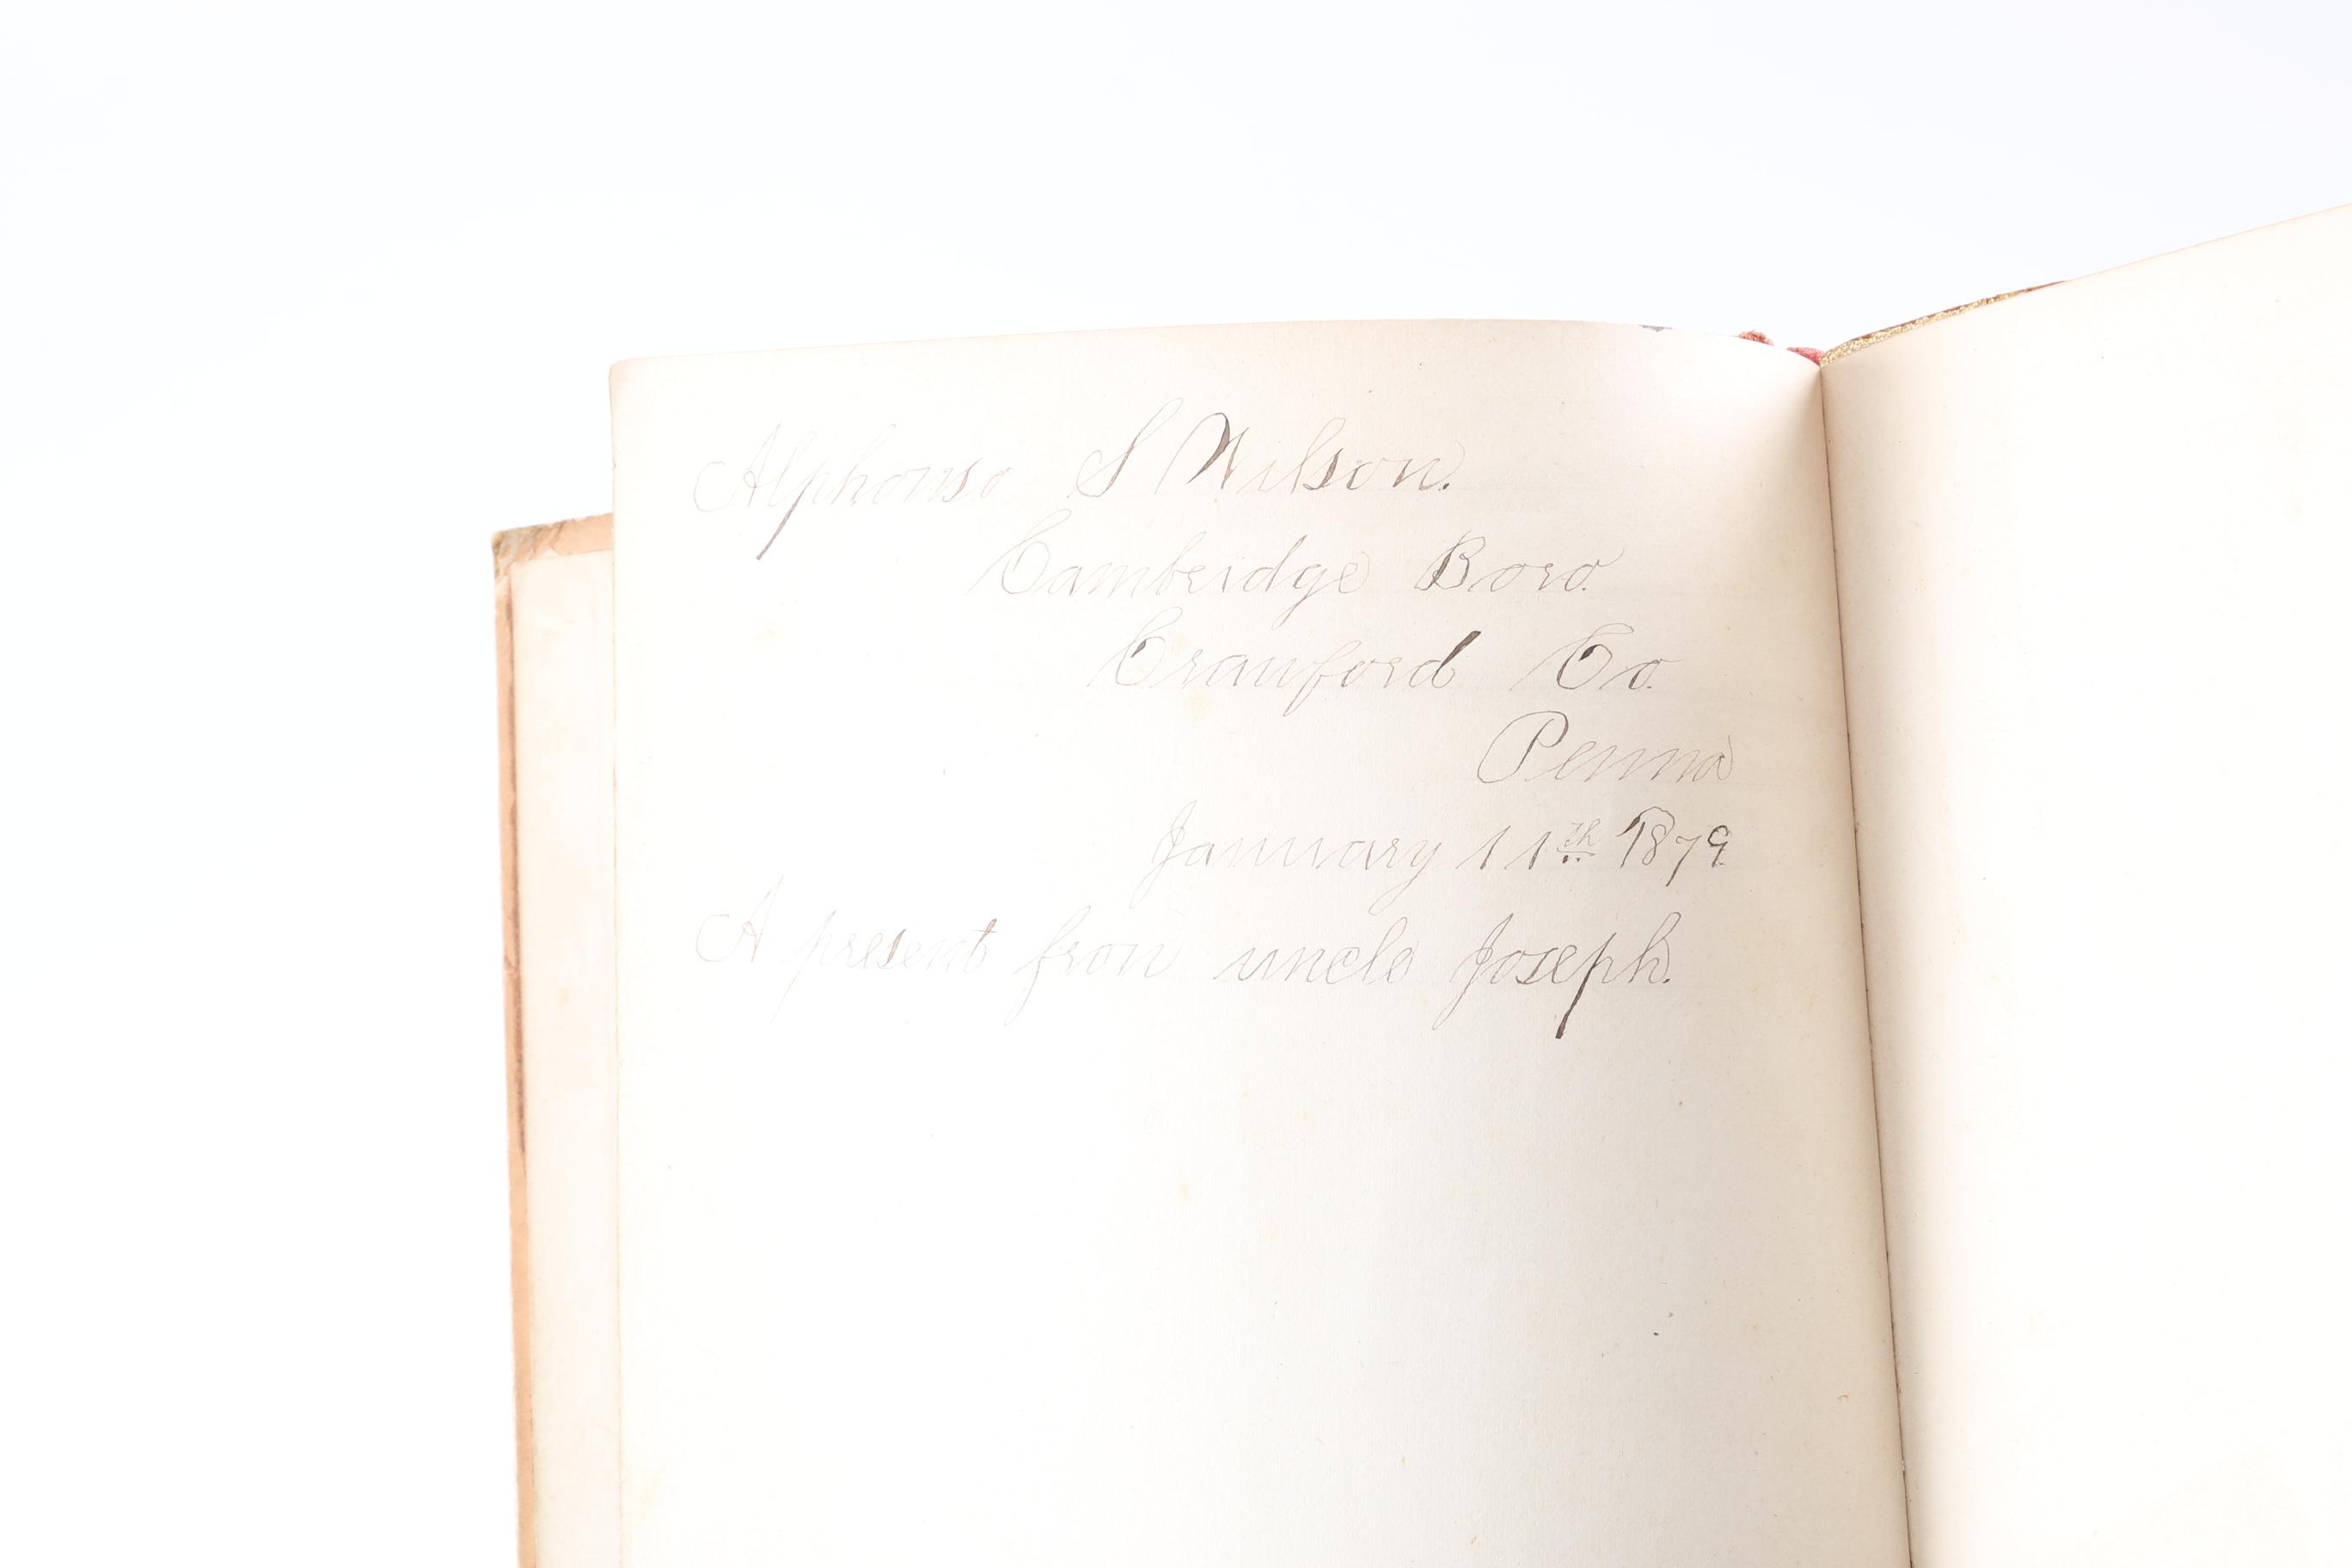 Alphonso S Wilson.
Cambridge Boro.
Crawford Co.
Penna
January 11th 1879.
A present from uncle Joseph.